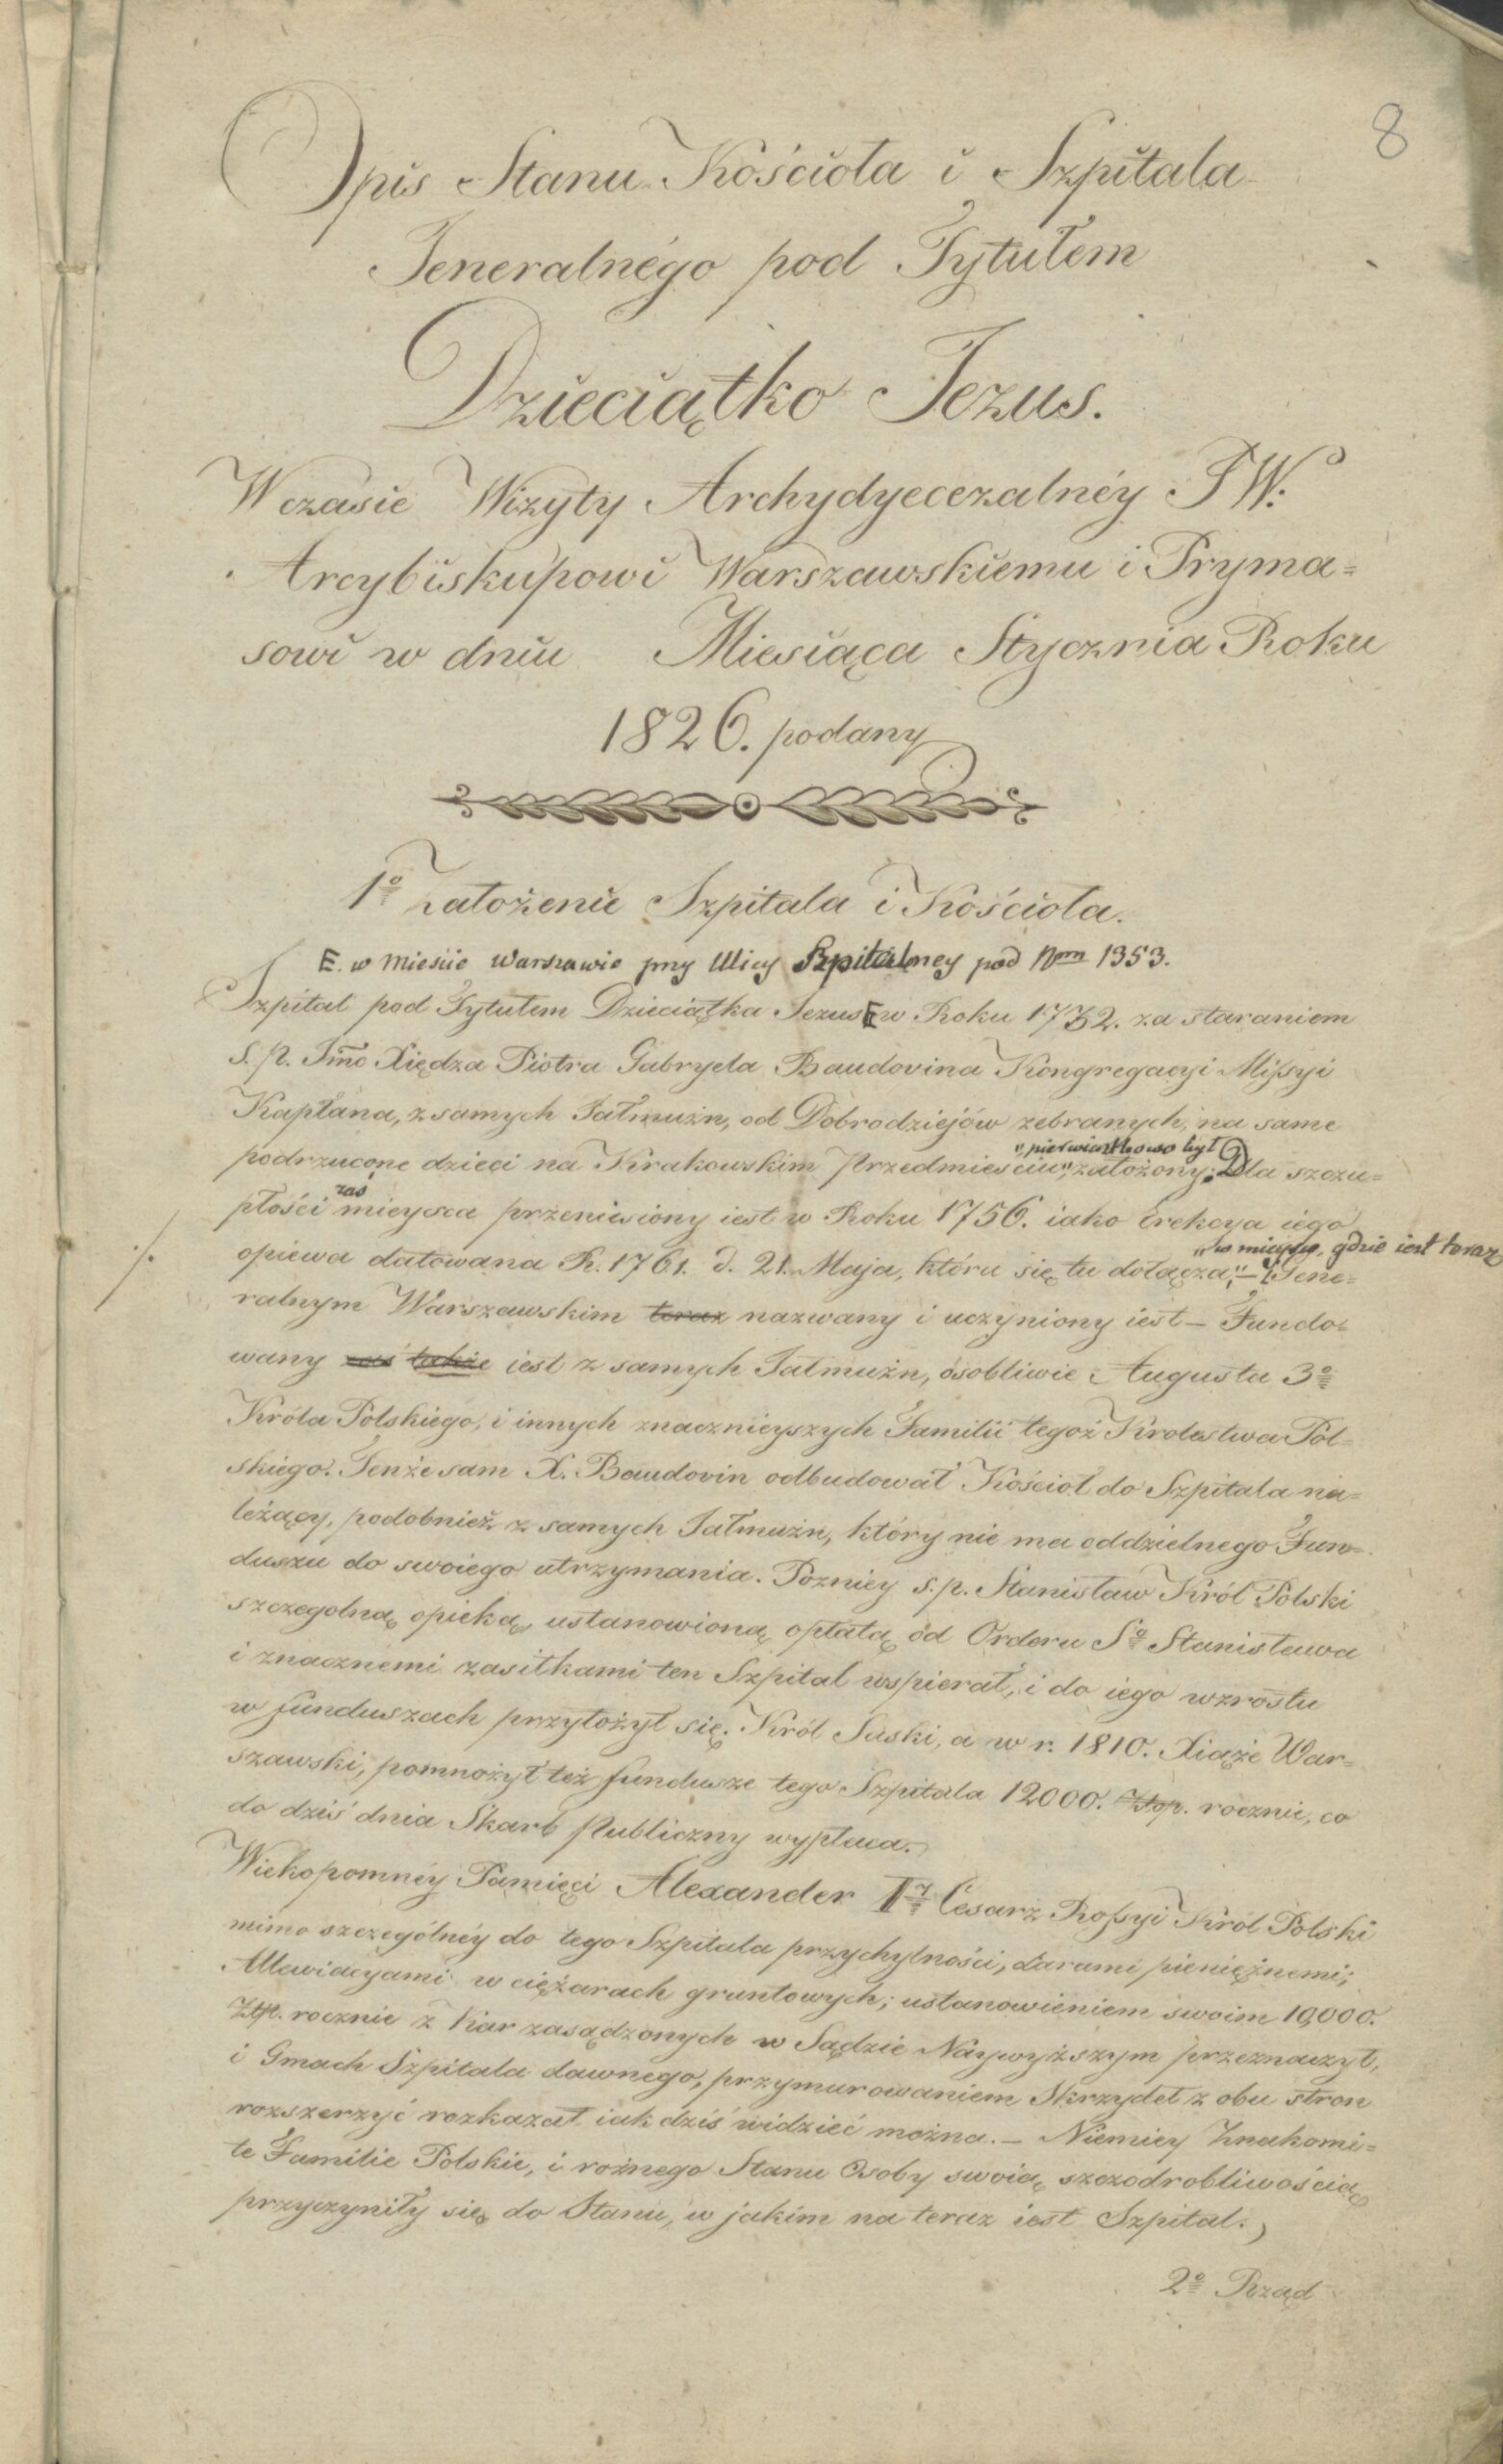 8
Opis Stanu Kościoła i Szpitala
Jeneralnégo pod Tytułem
Dzieciątko Jezus.
W czasie Wizyty Archydyecezalnéy JW.
Arcybiskupowi Warszawskiemu i Pryma=
sowi w dniu Miesiąca Stycznia Roku
1826. podany
1º Założenie Szpitala i Kościoła.
E. w Mieście Warszawie przy Ulicy Szpitalney pod Nrem 1353.
Szpital pod Tytułem Dzieciątka Jezus E w Roku 1732. za staraniem
S. p. Jmć Xiędza Piotra Gabryela Baudovina Kongregacyi Missyi
Kapłana, z samych Jałmużn, od Dobrodziejów zebranych, na same
" pierwiastkowo był
podrzucone dzieci na Krakowskim Przedmieściu," założony; Dla szczu=
zaś
płości mieysca przeniesiony iest w Roku 1756. iako Erekcya iego
" w mieysce, gdzie iest teraz
./. opiewa datowana R. 1761. d. 21. Maja, która się tu dołącza," – i Jene=
ralnym Warszawskim teraz nazwany i uczyniony iest – Fundo=
wany zaś także iest z samych Jałmużn, osobliwie Augusta 3º
Króla Polskiego, i innych znacznieyszych Familii tegoż Krolestwa Pol=
skiego. Tenże sam X. Baudovin odbudował Kościoł do Szpitala na=
leżący, podobnież z samych Jałmużn, który nie ma oddzielnego Fun=
duszu do swoiego utrzymania. Pozniey s. p. Stanisław Król Polski
szczegolną opieką, ustanowioną opłatą od Orderu Sgo Stanisława
i znacznemi zasiłkami ten Szpital wspierał, i do iego wzrostu
w funduszach przyłożył się. Król Saski, a w r. 1810. Xiąże War=
szawski, pomnożył też fundusze tego Szpitala 12000. Złop. rocznie, co
do dziś dnia Skarb Publiczny wypłaca.
Wiekopomnéy Pamięci Alexander Iy Cesarz Rossyi Król Polski
mimo szczególnéy do tego Szpitala przychylności, darami pieniężnemi;
Allewiacyami w ciężarach gruntowych; ustanowieniem swoim 10,000.
Złp. rocznie z Kar zasądzonych w Sądzie Naywyższym przeznaczył,
i Gmach Szpitala dawnego, przymurowaniem Skrzydeł z obu stron
rozszerzyć rozkazał iak dziś widzieć można. – Niemiey Znakomi=
te Familie Polskie, i rożnego Stanu Osoby swoią szczodrobliwością
przyczyniły się do Stanu, w jakim na teraz iest Szpital.
2º Rząd